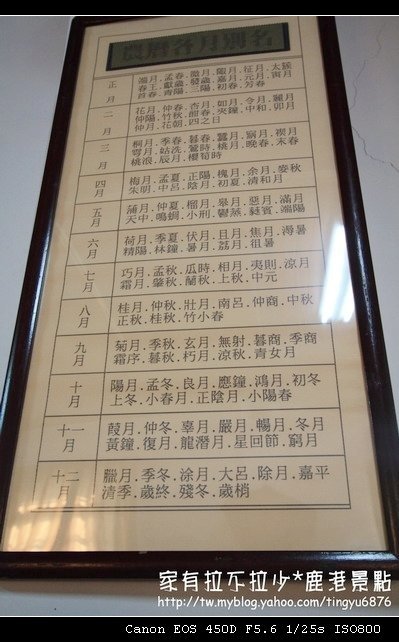 農曆各月別名
正月
端月.孟春.微月.陬月.征月.太簇
春王.獻歲.發歲.嘉月.元月.寅月
首春.青陽.三陽.初春.芳春
二月
花月.仲春.杏月.如月.令月.麗月
仲陽.竹秋.酣春.夾鐘.中和.卯月
仲月.花朝.四之日
三月
桐月.季春.暮春.蠶月.窉月.禊月
雩月.姑洗.鶯時.桃月.晚春.末春
桃浪.辰月.櫻筍時
四月
梅月.孟夏.正陽.槐月.余月.麥秋
朱明.中呂.陰月.初夏.清和月
五月
蒲月.仲夏.榴月.皋月.惡月.滿月
天中.鳴蜩.小刑.鬱蒸.蕤賓.端陽
六月
荷月.季夏.伏月.且月.焦月.溽暑
精陽.林鐘.暑月.荔月.徂暑
七月
巧月.孟秋.瓜時.相月.夷則.涼月
霜月.肇秋.蘭秋.上秋.中元
八月
桂月.仲秋.壯月.南呂.仲商.中秋
正秋.桂秋.竹小春
九月
菊月.季秋.玄月.無射.暮商.季商
霜序.暮秋.朽月.涼秋.青女月
十月
陽月.孟冬.良月.應鐘.鴻月.初冬
上冬.小春月.正陰月.小陽春
十一月
葭月.仲冬.辜月.嚴月.暢月.冬月
黃鐘.復月.龍潛月.星回節.窮月
十二月
臘月.季冬.涂月.大呂.除月.嘉平
清季.歲終.殘冬.歲梢
家有拉不拉少*鹿港景點
http://tw.myblog.yahoo.com/tingyu6876
Canon EOS 450D F5.6 1/25s ISO800